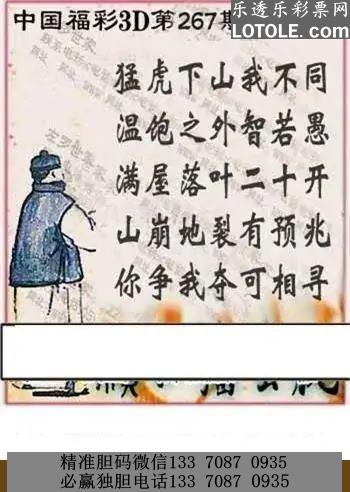 中国福彩3D第267期
乐透乐彩票网
LOTOLE.COM
猛虎下山我不同
温饱之外智若愚
满屋落叶二十开
山崩地裂有预兆
你争我夺可相寻
精准胆码微信133 7087 0935
必赢独胆电话133 7087 0935